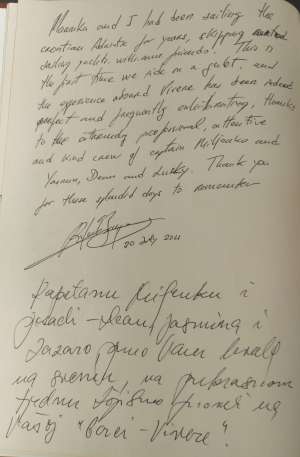 Monika and I had been sailing the
croatian Adriatic for years, skipping
sailing yachts with some friends. This is
the first time we ride on a gulet. and
the experience aboard Vivere has been indeed
perfect and frequently exhilarating, thanks
to the extremely professional, attentive
and kind crew of captain Miljenko and
Yasmin, Dean and Lucky. Thank you
for these splendid days to remember
20 July 2011
Kapetanu Miljenku i
posadi - Deanu, Jasminu i
Lazaru smo Vam hvala
na svemu, na prekrasnom
tjednu što smo proveli na
Vašoj "Vivere"!